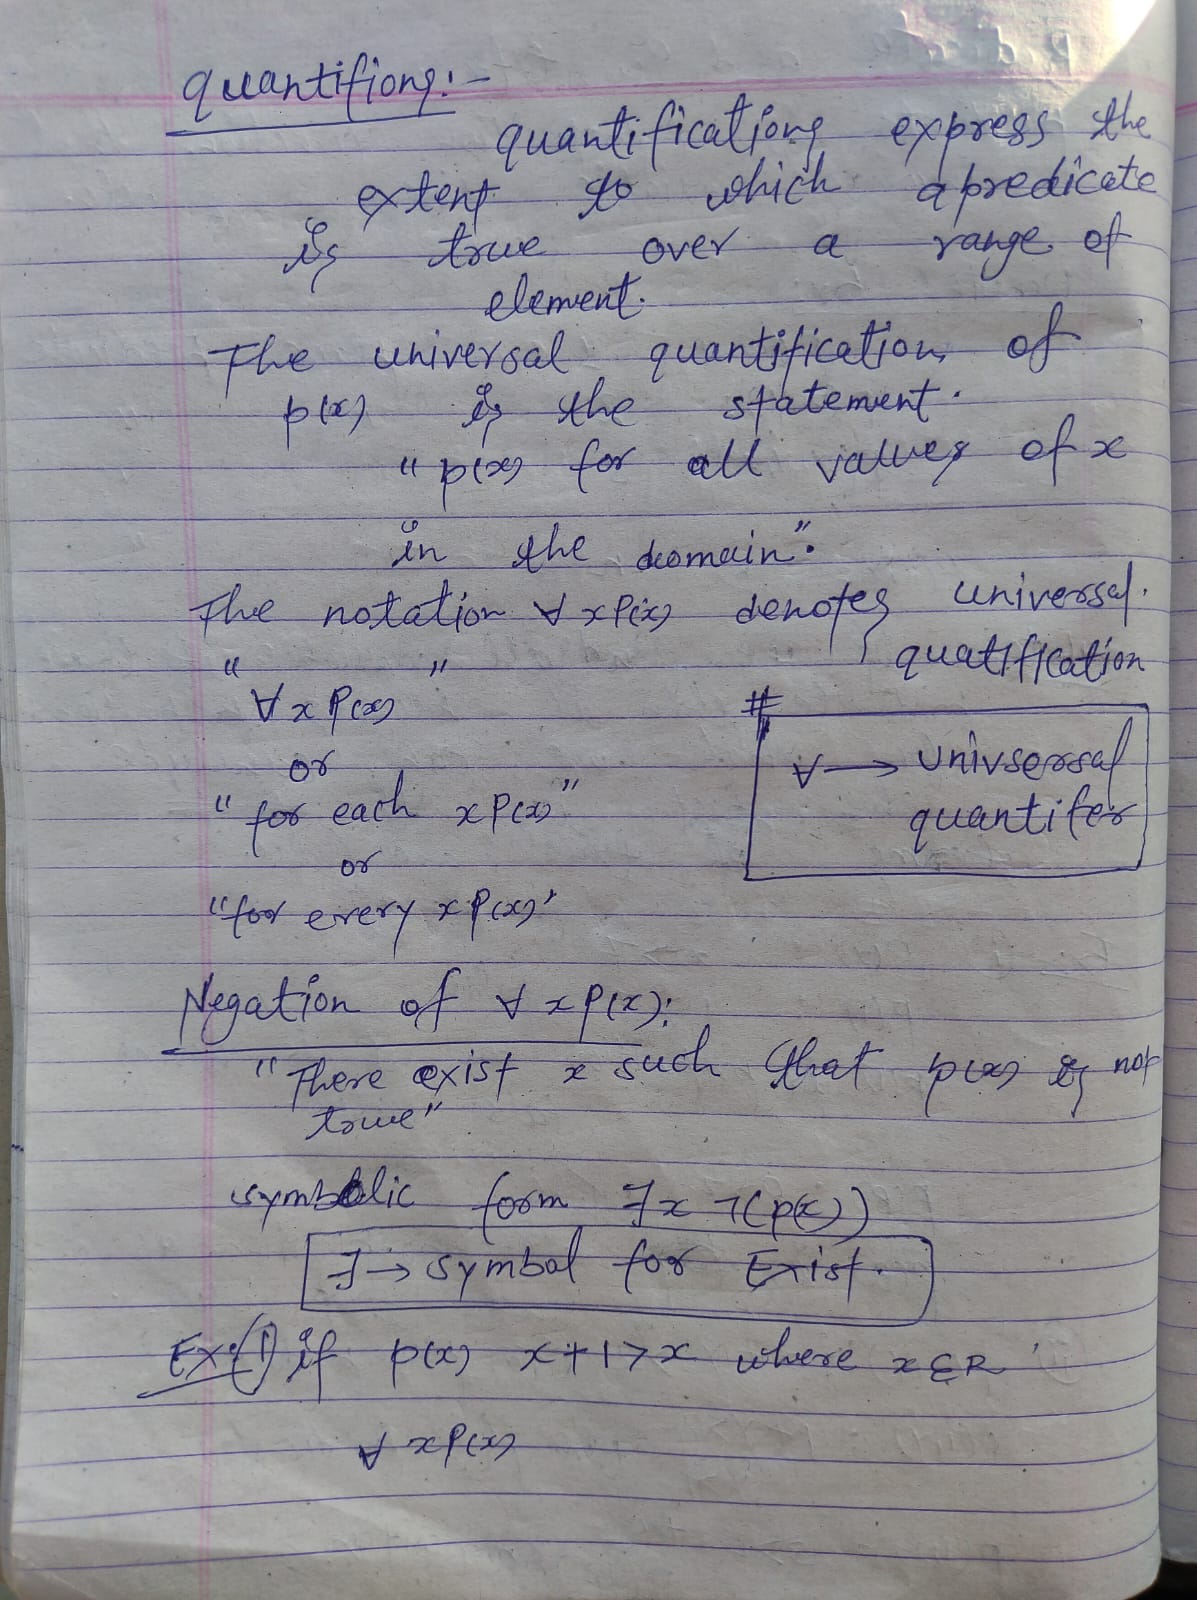 quantifiong:-
quantifications express the
extent to which a predicate
is true over a range of
element.
The universal quantification of
p(x) is the statement.
"p(x) for all values of x
in the domain".
The notation ∀ x P(x) denotes universal.
quatification
" "
∀ x P(x)
or
"for each x P(x)"
or
"for every x P(x)'
#
∀ → Univsersal
quantifer
Negation of ∀ x P(x):
"There exist x such that p(x) is not
true"
symbolic form ∃x ¬(p(x))
∃→ symbol for Exist.
Ex:(1) if p(x) x+1>x where x∈R
∀ x P(x)